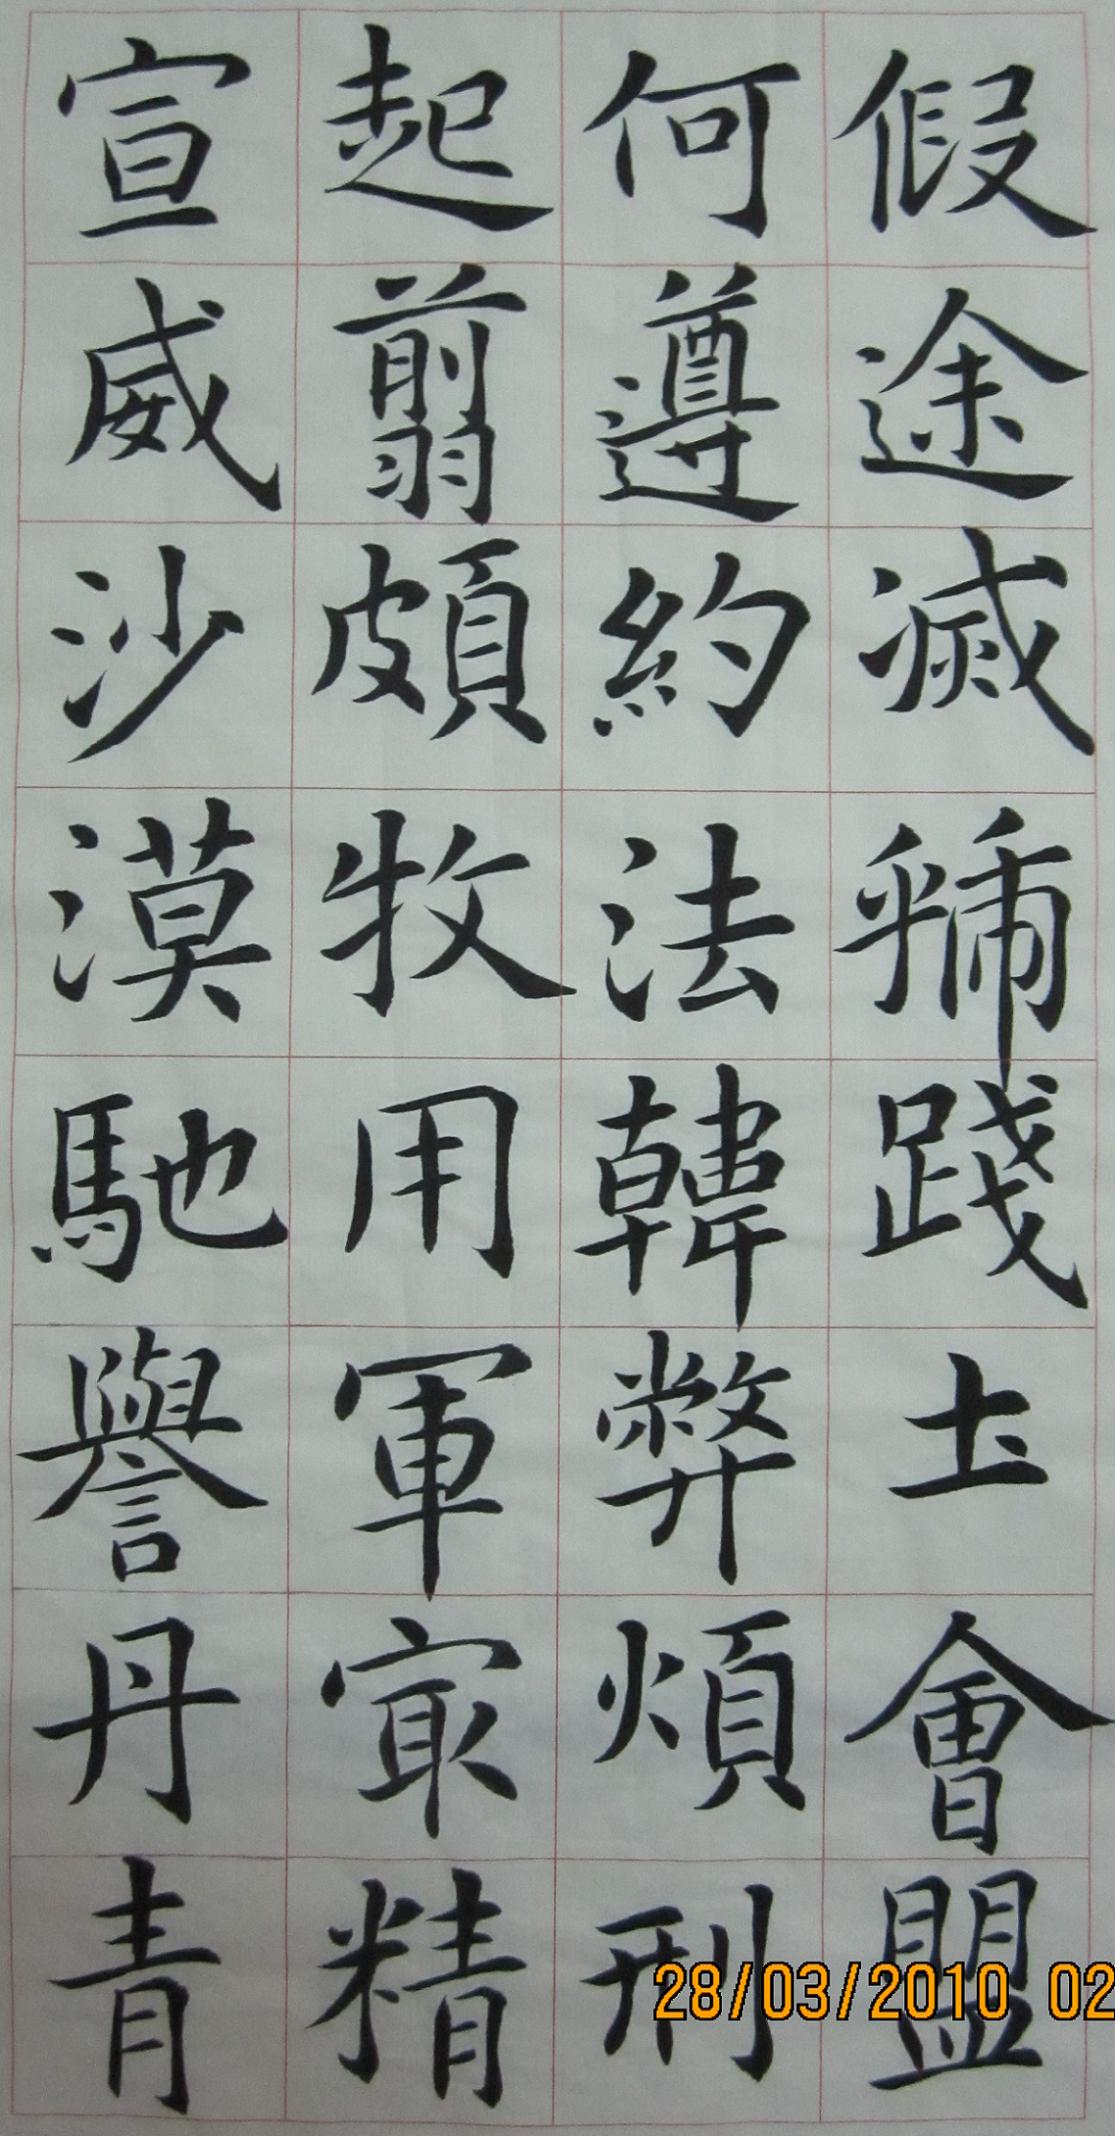 假途滅虢踐土會盟
何遵約法韓弊煩刑
起翦頗牧用軍最精
宣威沙漠馳譽丹青
28/03/2010 02